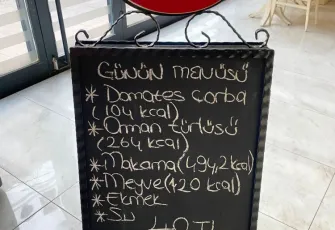 GÜNÜN MENÜSÜ
* Domates çorba
(104 kcal)
* Orman türlüsü
(264 kcal)
* Makarna (494,2 kcal)
* Meyve (120 kcal)
* Ekmek
* Su
40 TL